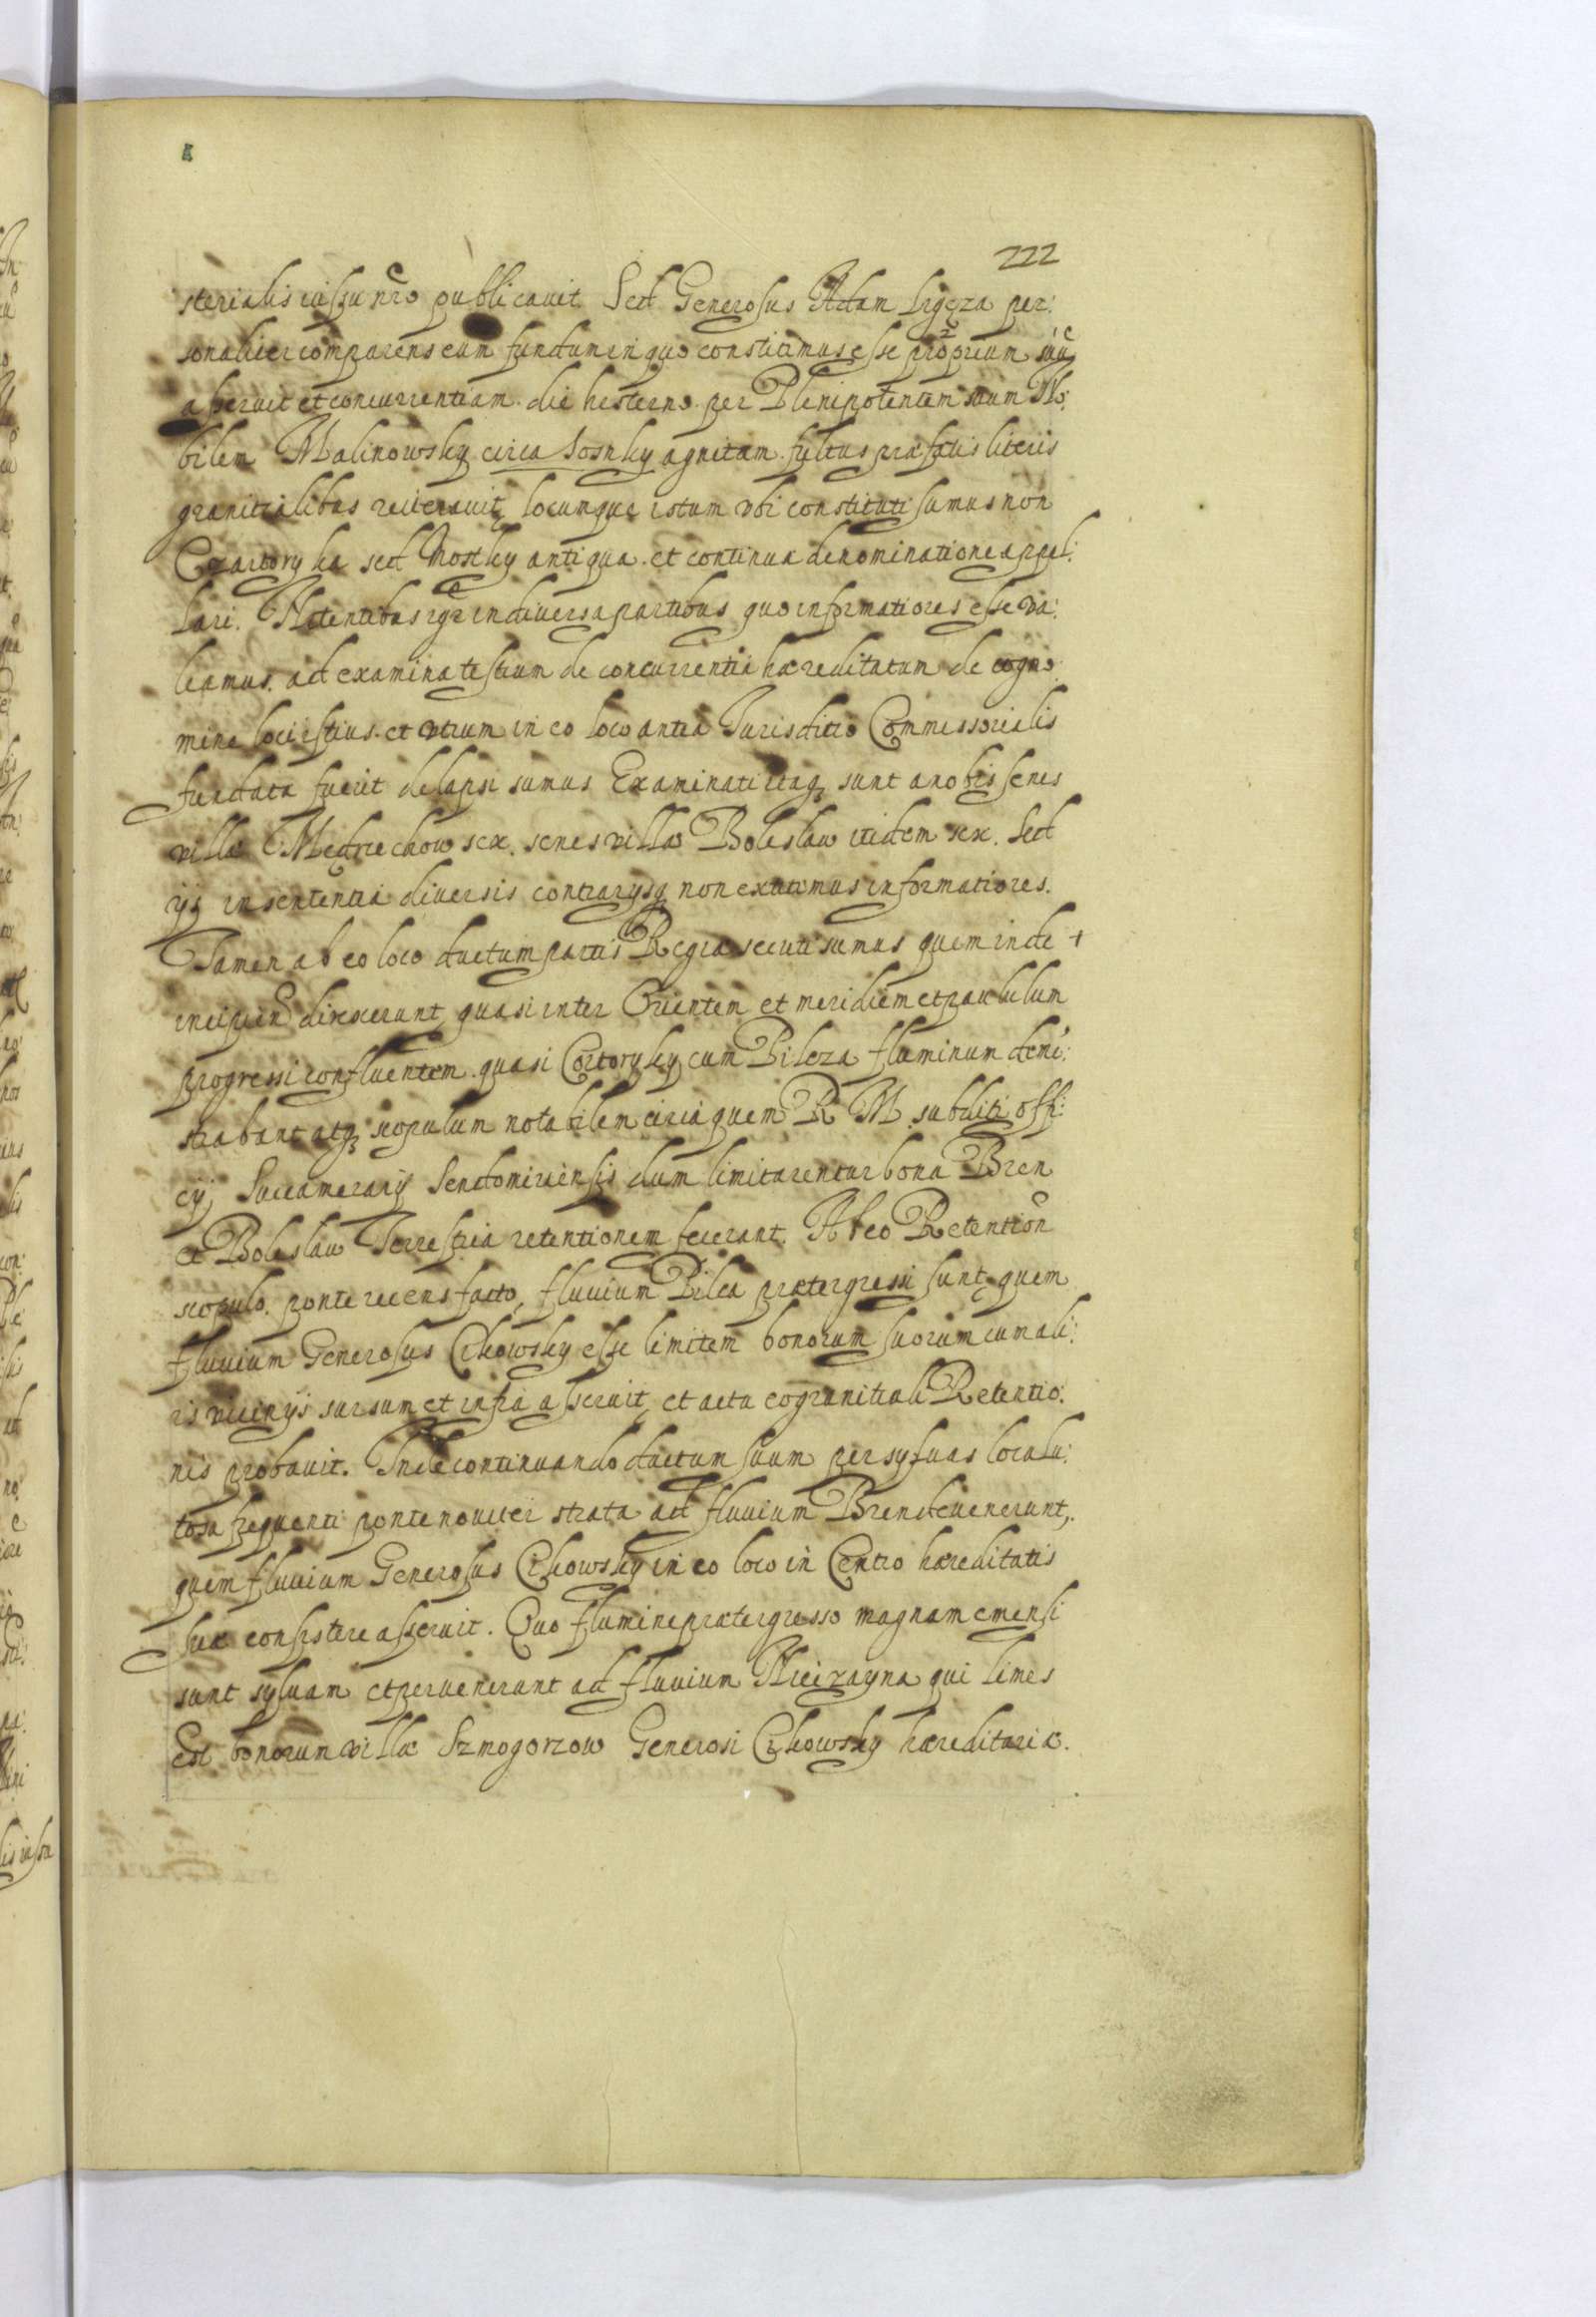 222
sterialis iussu nro publicauit Sed Generosus Adam Ligęza per:
sonaliter comparens eum fundum in quo constitimus esse proprium suũ
asseruit et concurrentiam die hesterno per Plenipotentem suum No:
bilem Malinowsky circa Sosnky agnitam fultus præfatis literis
granitialibus reiterauit, locumque istum vbi constituti sumus non
Czartoryka sed Mostky antiqua et continua denominatione appel:
lari. Nitentibus igr in diuersa partibus quo informatiores esse va:
leamus. ad examina testium de concurrentia hæreditatum de cogno:
mine loci istius et vtrum in eo loco antea Jurisditio Commissorialis
fundata fuerit delapsi sumus Examinati itaq sunt a nobis senes
villæ Medrzechow sex. senes villæ Boleslaw itidem sex. Sed
ijs in sententia diuersis contrarijsq non exiuimus informatiores.
Tamen ab eo loco ductum partis Regiæ secuti sumus quem inde +
incipien direxerunt, quasi inter Orientem et meridiem et paululum
progressi confluentem quasi Cortoryky cum Pilcza fluminum demõ:
strabant atq scopulum notabilem circa quem R M subditi offi:
cij Succamerarij Sendomiriensis dum limitarentur bona Bren
et Boleslau Terrestria retentionem fecerant. Ab eo Retention
scopulo. ponte recens facto, fluuium Pilca prætergressi sunt, quem
fluuium Generosus Cikowsky esse limitem bonorum suorum cum ali:
is vicinijs sursum et infra asseruit, et actu cogranitiali Retentio:
nis probauit. Inde continuando ductum suum per syluas loca lu:
tosa frequenti ponte nouiter strata ad fluuium Bren deuenerunt,
quem fluuium Generosus Cikowsky in eo loco in Centro hæreditatis
suæ consistere asseruit. Quo flumine prætergresso magnam emensi
sunt syluam et peruenerunt ad fluuium Nieizayna qui limes
Est bonorum villæ Szmogorzow Generosi Cikowsky hæreditariæ.